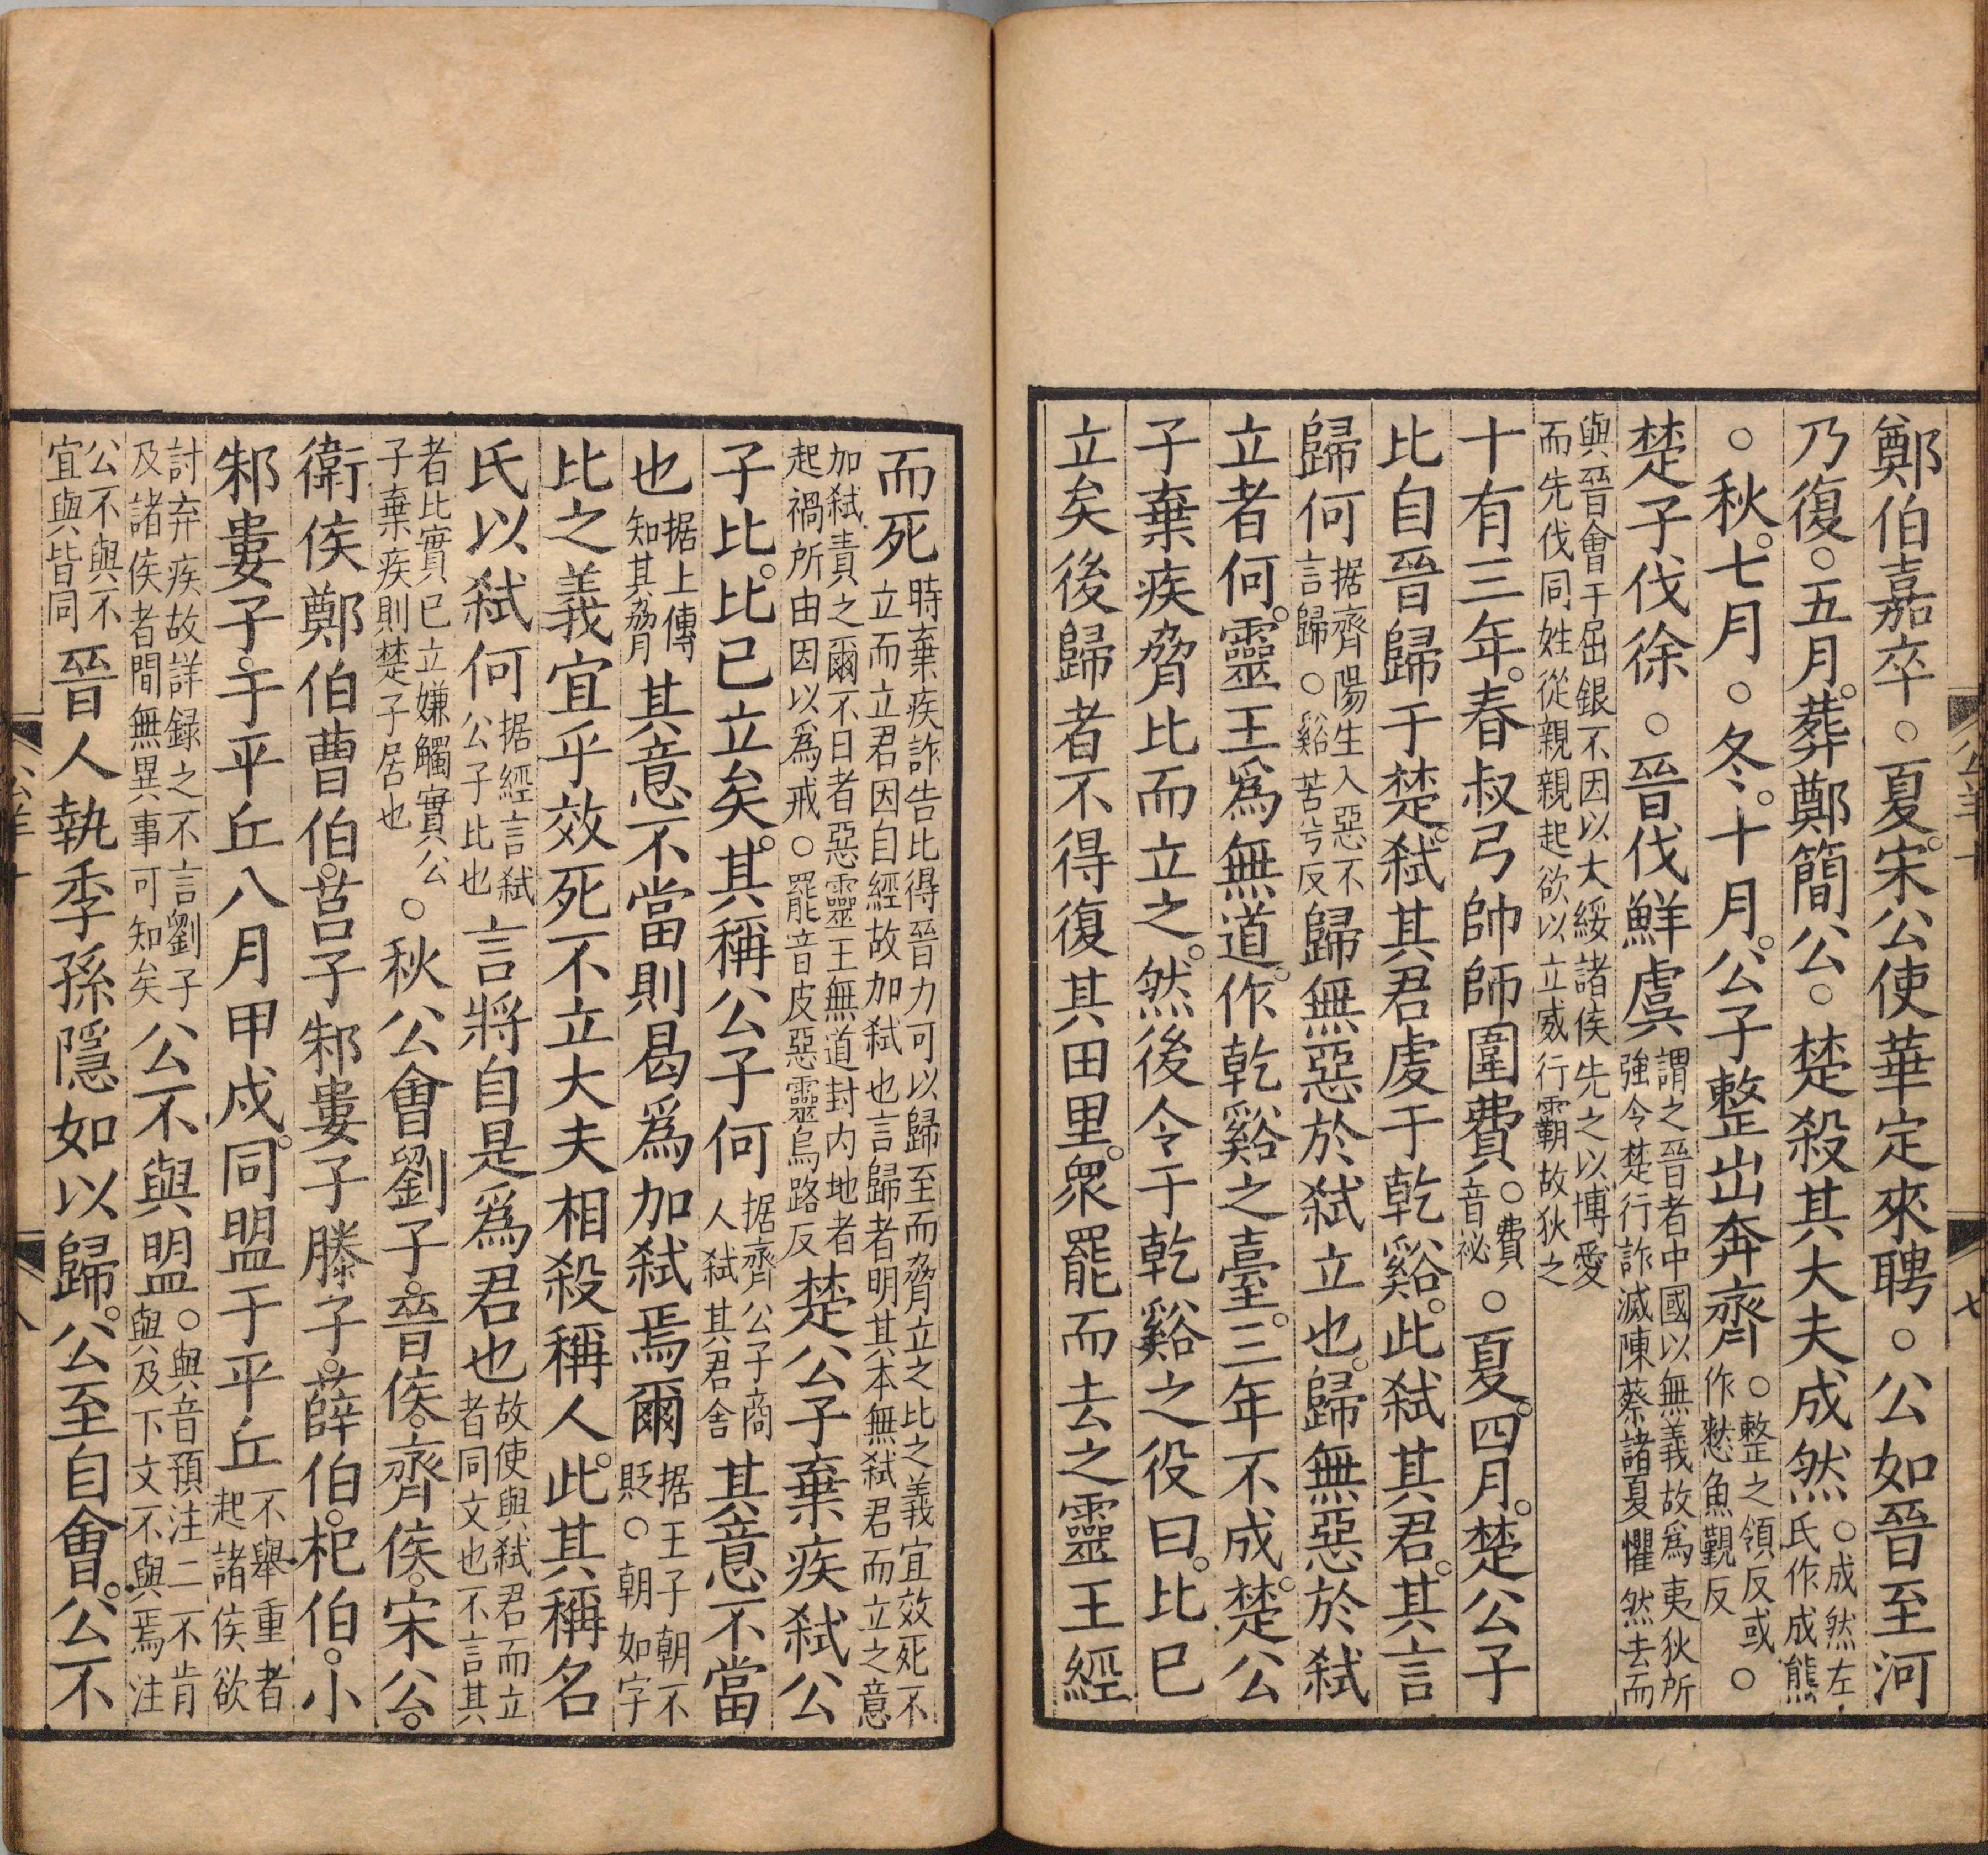 鄭伯嘉卒○夏宋公使華定來聘○公如晉至河
乃復○五月葬鄭簡公○楚殺其大夫成然○成然左氏作成熊
○秋七月○冬十月公子整出奔齊○整之領反或作憖魚覲反○
楚子伐徐○晉伐鮮虞謂之晉者中國以無義故爲夷狄所強令楚行詐滅陳蔡諸夏懼然去而
與晉會于屈銀不因以大綏諸侯先之以博愛而先伐同姓從親親起欲以立威行霸故狄之
十有三年春叔弓帥師圍費○費音祕○夏四月楚公子
比自晉歸于楚弒其君虔于乾谿此弒其君其言
歸何据齊陽生入惡不言歸○谿苦兮反歸無惡於弒立也歸無惡於弒
立者何靈王爲無道作乾谿之臺三年不成楚公
子棄疾脅比而立之然後令于乾谿之役曰比已
立矣後歸者不得復其田里衆罷而去之靈王經
而死時棄疾詐告比得晉力可以歸至而脅立之比之義宜效死不立而立君因自經故加弒也言歸者明其本無弒君而立之意
加弒責之爾不日者惡靈王無道封内地者起禍所由因以爲戒○罷音皮惡靈烏路反楚公子棄疾弒公
子比比已立矣其稱公子何据齊公子商人弒其君舍其意不當
也据上傳知其脅其意不當則曷爲加弒焉爾据王子朝不貶○朝如字
比之義宜乎效死不立大夫相殺稱人此其稱名
氏以弒何据經言弒公子比也言將自是爲君也故使與弒君而立者同文也不言其
者比實已立嫌觸實公子棄疾則楚子居也○秋公會劉子晉侯齊侯宋公
衛侯鄭伯曹伯莒子邾婁子滕子薛伯杞伯小
邾婁子于平丘八月甲戍同盟于平丘不舉重者起諸侯欲
討弃疾故詳録之不言劉子及諸侯者間無異事可知矣公不與盟○與音預注二不肯與及下文不與焉注
公不與不宜與皆同晉人執季孫隱如以歸公至自會公不
公羊十
七
八